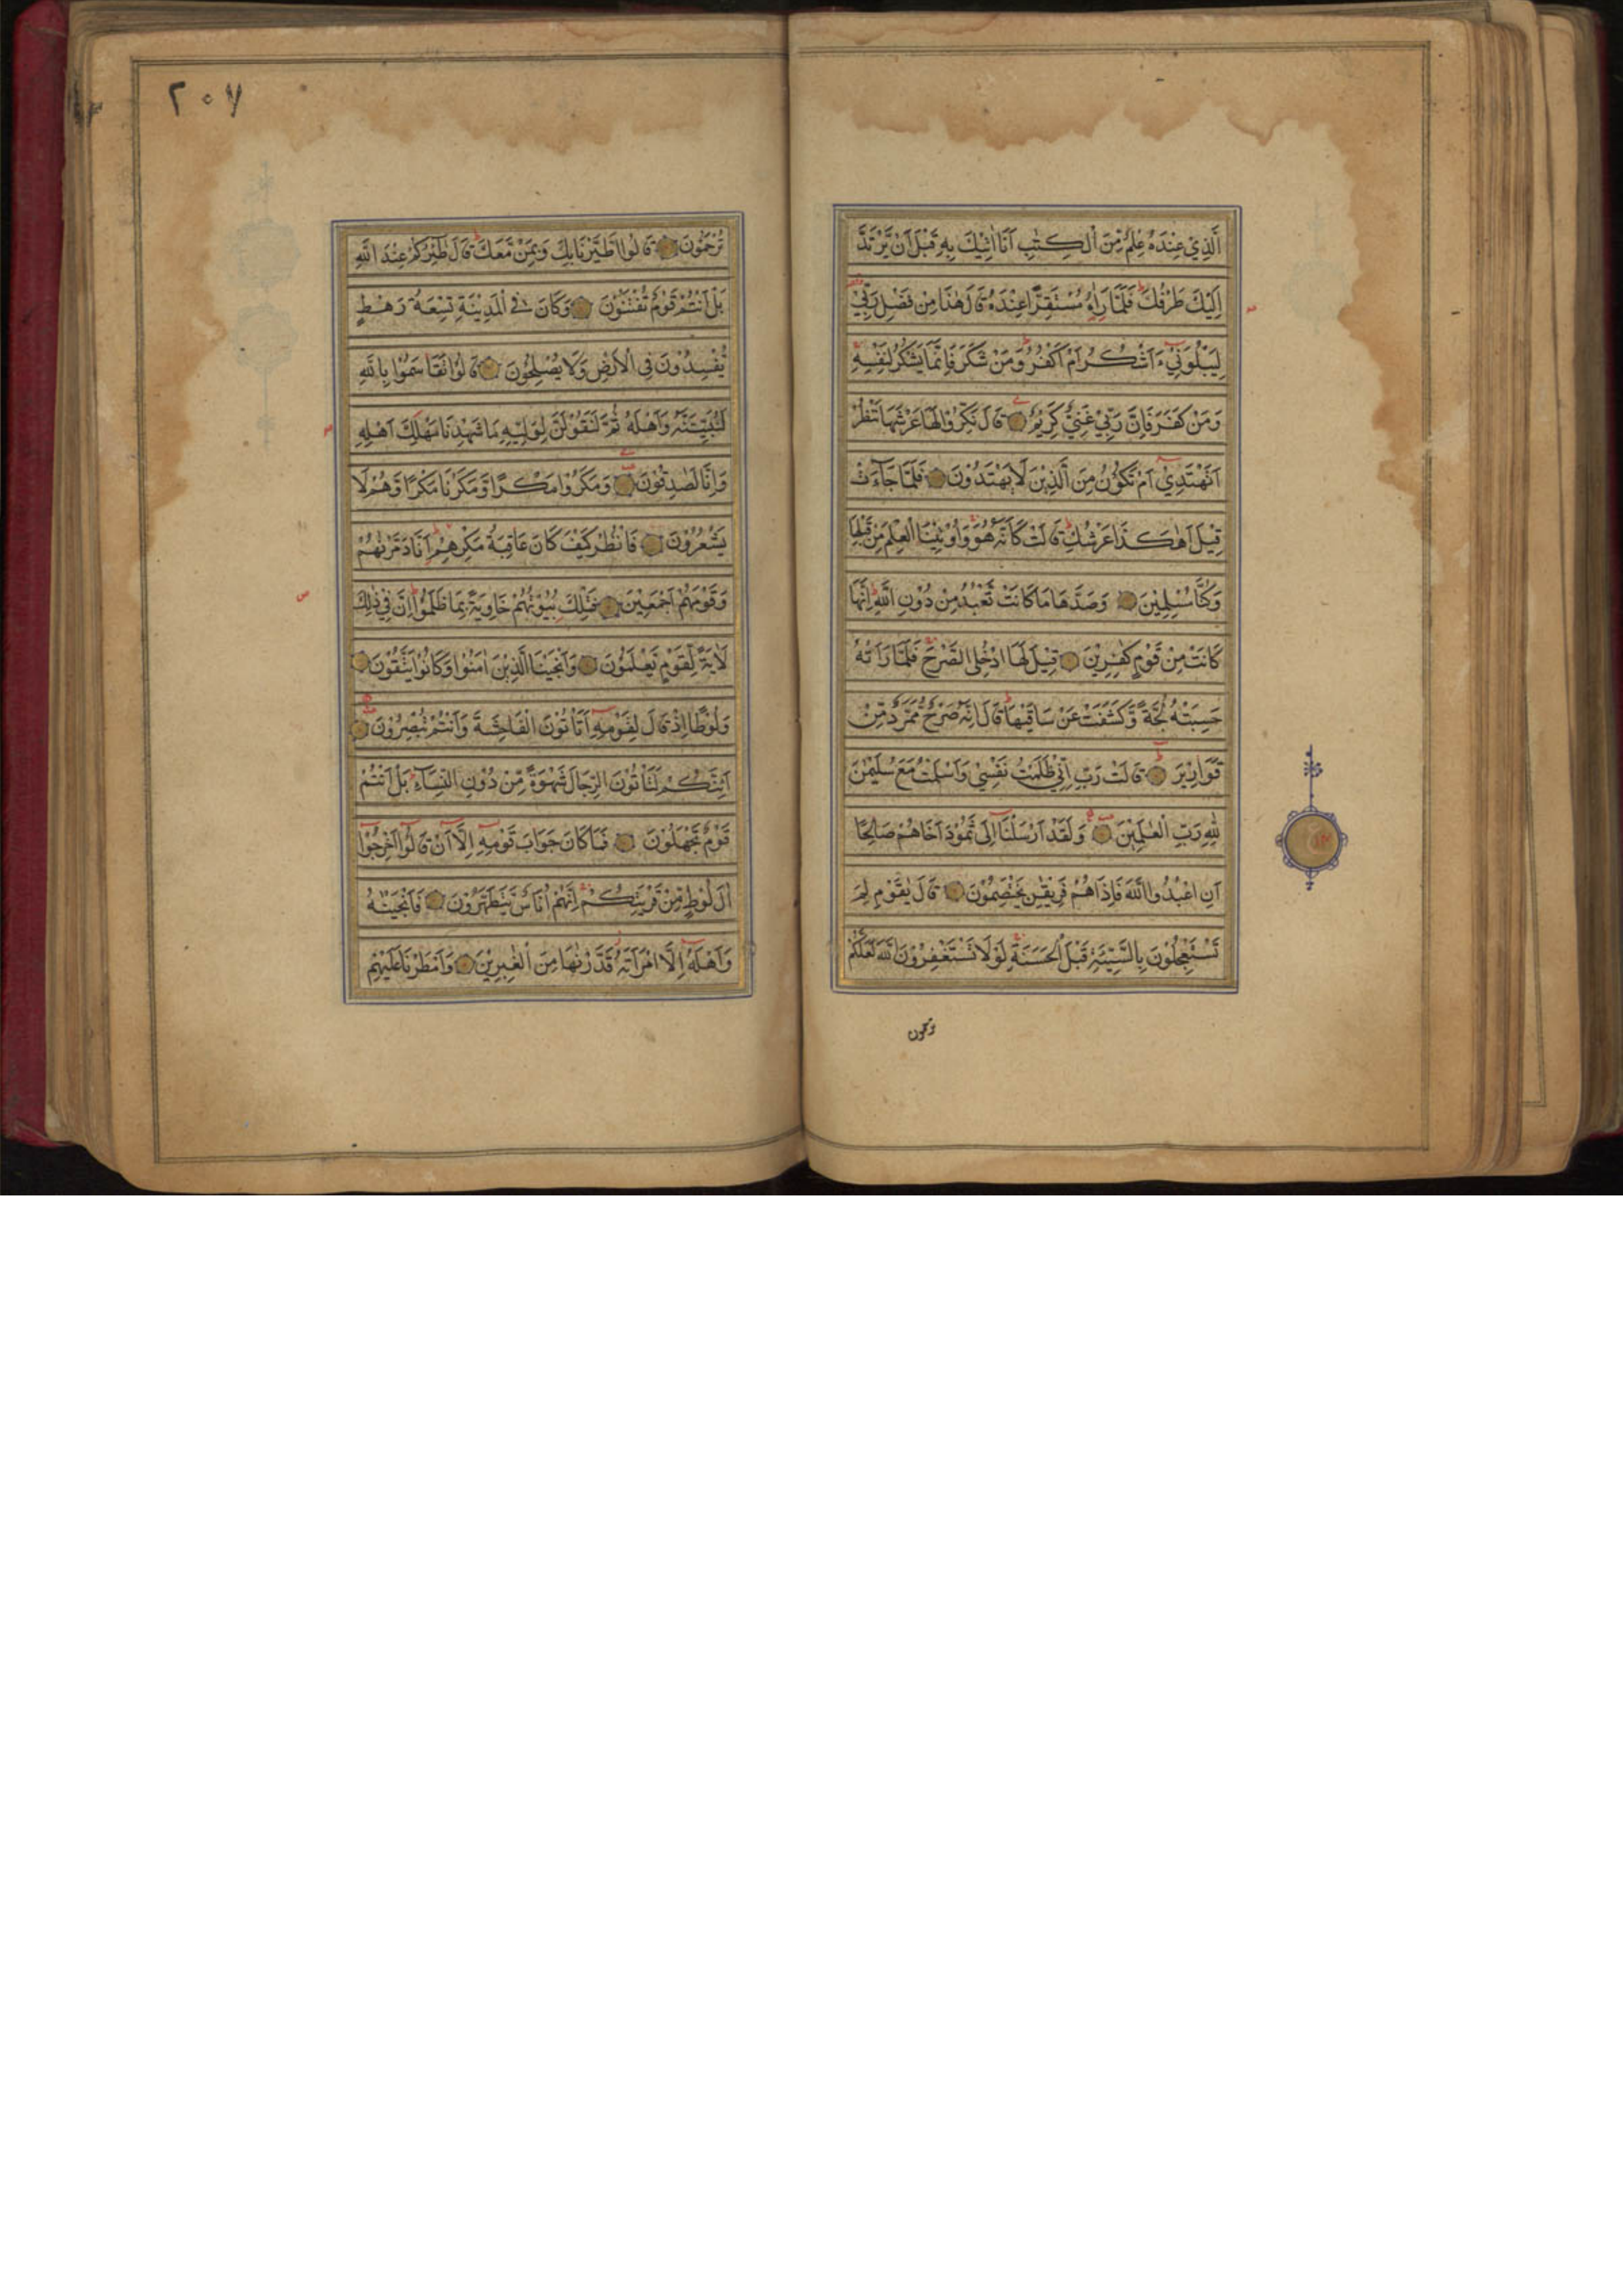 اَلَّذِيْ عِنْدَهٗ عِلْمٌ مِّنَ الْكِتٰبِ اَنَا اٰتِيْكَ بِهٖ قَبْلَ اَنْ يَّرْتَدَّ
اِلَيْكَ طَرْفُكَ فَلَمَّا رَاٰهُ مُسْتَقِرًّا عِنْدَهٗ قَالَ هٰذَا مِنْ فَضْلِ رَبِّيْ
لِيَبْلُوَنِيْٓ ءَاَشْكُرُ اَمْ اَكْفُرُ وَمَنْ شَكَرَ فَاِنَّمَا يَشْكُرُ لِنَفْسِهٖ
وَمَنْ كَفَرَ فَاِنَّ رَبِّيْ غَنِيٌّ كَرِيْمٌ قَالَ نَكِّرُوْا لَهَا عَرْشَهَا نَنْظُرْ
اَتَهْتَدِيْٓ اَمْ تَكُوْنُ مِنَ الَّذِيْنَ لَا يَهْتَدُوْنَ فَلَمَّا جَآءَتْ
قِيْلَ اَهٰكَذَا عَرْشُكِ قَالَتْ كَاَنَّهٗ هُوَ وَاُوْتِيْنَا الْعِلْمَ مِنْ قَبْلِهَا
وَكُنَّا مُسْلِمِيْنَ وَصَدَّهَا مَا كَانَتْ تَّعْبُدُ مِنْ دُوْنِ اللّٰهِ اِنَّهَا
كَانَتْ مِنْ قَوْمٍ كٰفِرِيْنَ قِيْلَ لَهَا ادْخُلِي الصَّرْحَ فَلَمَّا رَاَتْهُ
حَسِبَتْهُ لُجَّةً وَّكَشَفَتْ عَنْ سَاقَيْهَا قَالَ اِنَّهٗ صَرْحٌ مُّمَرَّدٌ مِّنْ
قَوَارِيْرَ قَالَتْ رَبِّ اِنِّيْ ظَلَمْتُ نَفْسِيْ وَاَسْلَمْتُ مَعَ سُلَيْمٰنَ
لِلّٰهِ رَبِّ الْعٰلَمِيْنَ وَلَقَدْ اَرْسَلْنَآ اِلٰى ثَمُوْدَ اَخَاهُمْ صَالِحًا
اَنِ اعْبُدُوا اللّٰهَ فَاِذَا هُمْ فَرِيْقٰنِ يَخْتَصِمُوْنَ قَالَ يٰقَوْمِ لِمَ
تَسْتَعْجِلُوْنَ بِالسَّيِّئَةِ قَبْلَ الْحَسَنَةِ لَوْلَا تَسْتَغْفِرُوْنَ اللّٰهَ لَعَلَّكُمْ
ترحمون
٢٠٧
تُرْحَمُوْنَ قَالُوا اطَّيَّرْنَا بِكَ وَبِمَنْ مَّعَكَ قَالَ طٰٓئِرُكُمْ عِنْدَ اللّٰهِ
بَلْ اَنْتُمْ قَوْمٌ تُفْتَنُوْنَ وَكَانَ فِي الْمَدِيْنَةِ تِسْعَةُ رَهْطٍ
يُّفْسِدُوْنَ فِي الْاَرْضِ وَلَا يُصْلِحُوْنَ قَالُوْا تَقَاسَمُوْا بِاللّٰهِ
لَنُبَيِّتَنَّهٗ وَاَهْلَهٗ ثُمَّ لَنَقُوْلَنَّ لِوَلِيِّهٖ مَا شَهِدْنَا مَهْلِكَ اَهْلِهٖ
وَاِنَّا لَصٰدِقُوْنَ وَمَكَرُوْا مَكْرًا وَّمَكَرْنَا مَكْرًا وَّهُمْ لَا
يَشْعُرُوْنَ فَانْظُرْ كَيْفَ كَانَ عَاقِبَةُ مَكْرِهِمْ اَنَّا دَمَّرْنٰهُمْ
وَقَوْمَهُمْ اَجْمَعِيْنَ فَتِلْكَ بُيُوْتُهُمْ خَاوِيَةً بِمَا ظَلَمُوْا اِنَّ فِيْ ذٰلِكَ
لَاٰيَةً لِّقَوْمٍ يَّعْلَمُوْنَ وَاَنْجَيْنَا الَّذِيْنَ اٰمَنُوْا وَكَانُوْا يَتَّقُوْنَ
وَلُوْطًا اِذْ قَالَ لِقَوْمِهٖٓ اَتَاْتُوْنَ الْفَاحِشَةَ وَاَنْتُمْ تُبْصِرُوْنَ
اَئِنَّكُمْ لَتَاْتُوْنَ الرِّجَالَ شَهْوَةً مِّنْ دُوْنِ النِّسَآءِ بَلْ اَنْتُمْ
قَوْمٌ تَجْهَلُوْنَ فَمَا كَانَ جَوَابَ قَوْمِهٖٓ اِلَّآ اَنْ قَالُوْٓا اَخْرِجُوْٓا
اٰلَ لُوْطٍ مِّنْ قَرْيَتِكُمْ اِنَّهُمْ اُنَاسٌ يَّتَطَهَّرُوْنَ فَاَنْجَيْنٰهُ
وَاَهْلَهٗٓ اِلَّا امْرَاَتَهٗ قَدَّرْنٰهَا مِنَ الْغٰبِرِيْنَ وَاَمْطَرْنَا عَلَيْهِمْ